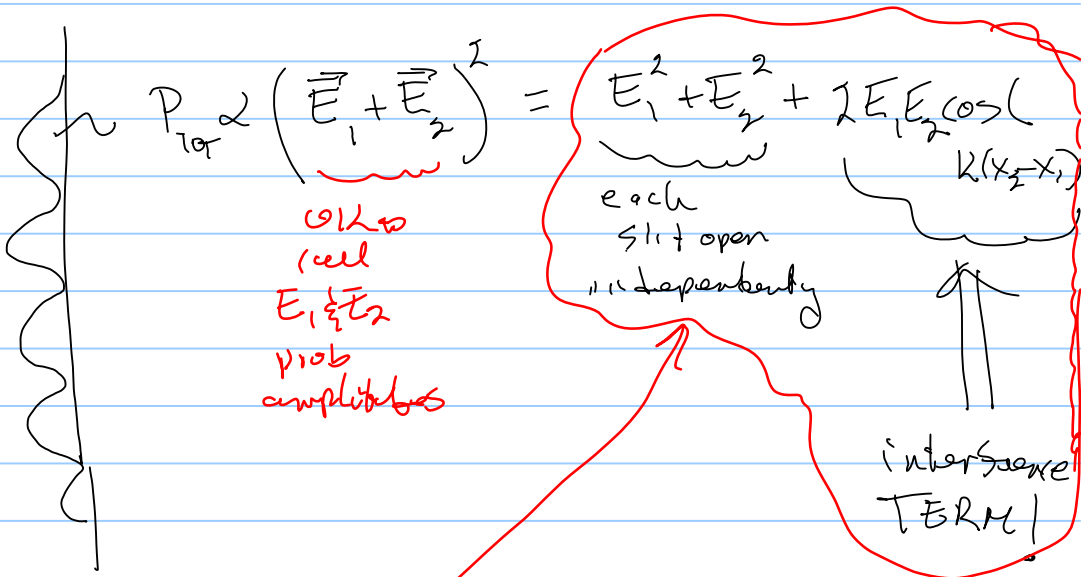 P_Tot ∝ (E⃗₁ + E⃗₂)² = E₁² + E₂² + 2E₁E₂cos(
k(x₂-x₁)
each
slit open
independently
OK to
call
E₁ & E₂
prob
amplitudes
interference
TERM!